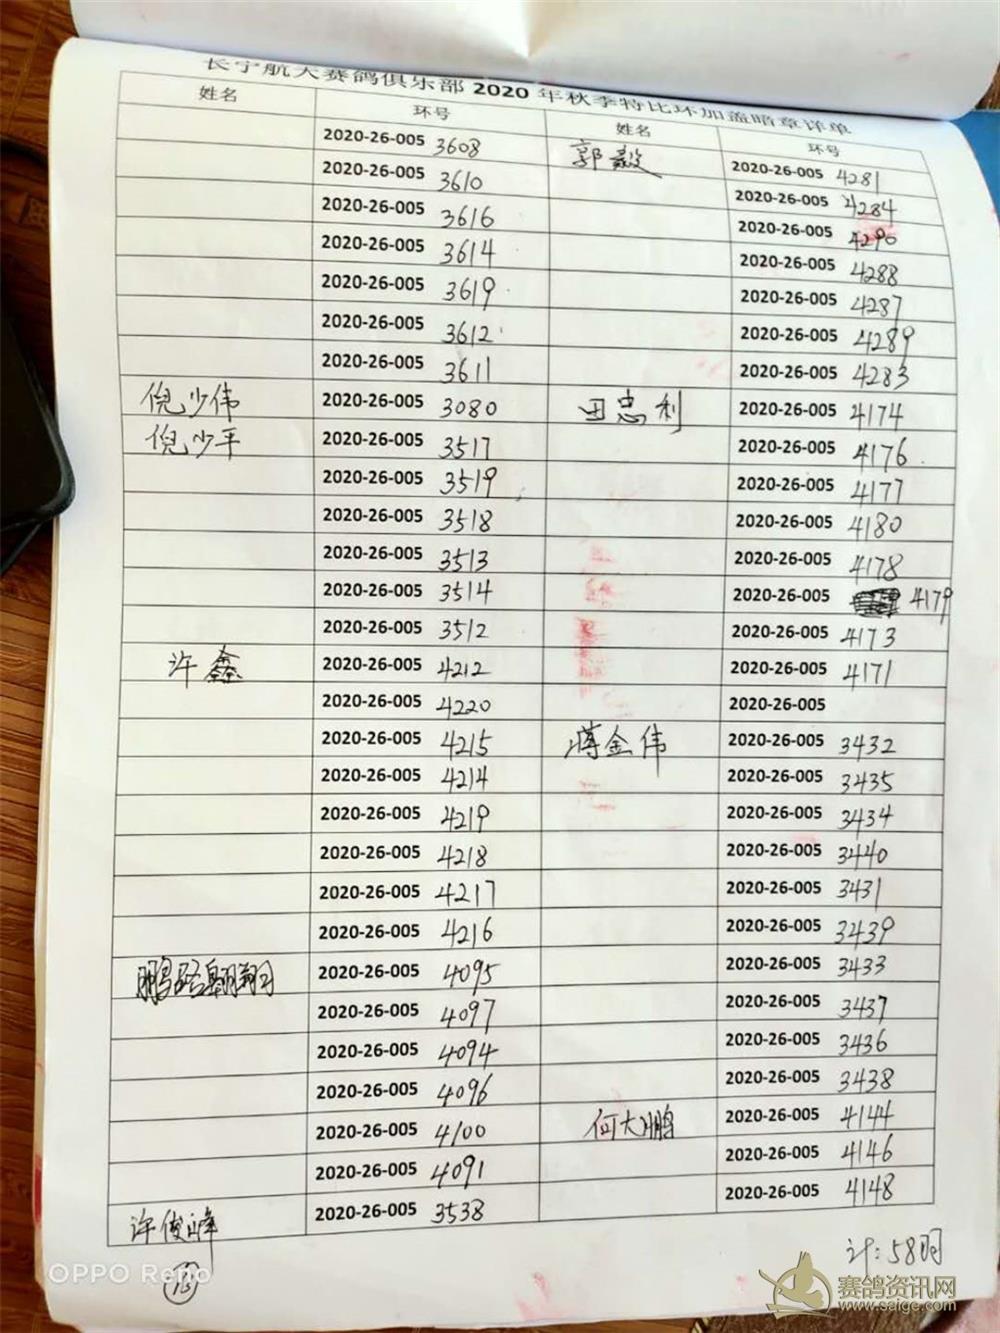 长宁航天赛鸽俱乐部 2020 年秋季特比环加盖暗章详单
姓名 环号 姓名 环号
2020-26-005 3608 郭毅 2020-26-005 4281
2020-26-005 3610 2020-26-005 4284
2020-26-005 3616 2020-26-005 4290
2020-26-005 3614 2020-26-005 4288
2020-26-005 3619 2020-26-005 4287
2020-26-005 3612 2020-26-005 4289
2020-26-005 3611 2020-26-005 4283
倪少伟 2020-26-005 3080 田忠利 2020-26-005 4174
倪少平 2020-26-005 3517 2020-26-005 4176
2020-26-005 3519 2020-26-005 4177
2020-26-005 3518 2020-26-005 4180
2020-26-005 3513 2020-26-005 4178
2020-26-005 3514 2020-26-005 4179
2020-26-005 3512 2020-26-005 4173
许鑫 2020-26-005 4212 2020-26-005 4171
2020-26-005 4220 2020-26-005
2020-26-005 4215 蒋金伟 2020-26-005 3432
2020-26-005 4214 2020-26-005 3435
2020-26-005 4219 2020-26-005 3434
2020-26-005 4218 2020-26-005 3440
2020-26-005 4217 2020-26-005 3431
2020-26-005 4216 2020-26-005 3439
2020-26-005 4095 2020-26-005 3433
2020-26-005 4097 2020-26-005 3437
2020-26-005 4094 2020-26-005 3436
2020-26-005 4096 2020-26-005 3438
2020-26-005 4100 何大鹏 2020-26-005 4144
2020-26-005 4091 2020-26-005 4146
许俊峰 2020-26-005 3538 2020-26-005 4148
计:58羽
13
OPPO Reno
赛鸽资讯网
www.saige.com